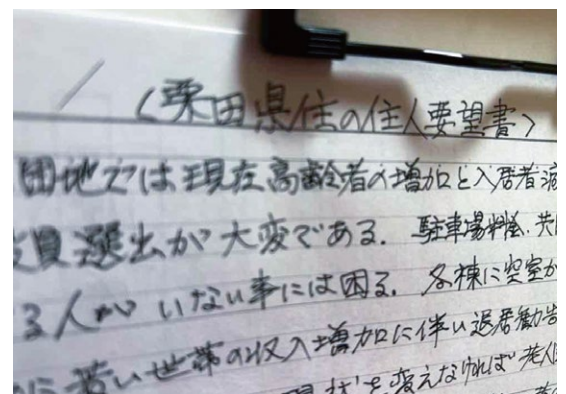 〈栗田県住の住人要望書〉
団地では現在高齢者の増加と入居者減
役員選出が大変である. 駐車場料金. 共
る人がいない事には困る. 各棟に空室が
に若い世帯の収入増加に伴い退居勧告
現状を変えなければ 老人